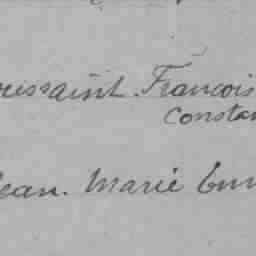 oussaint François
Constan
Jean. Marie